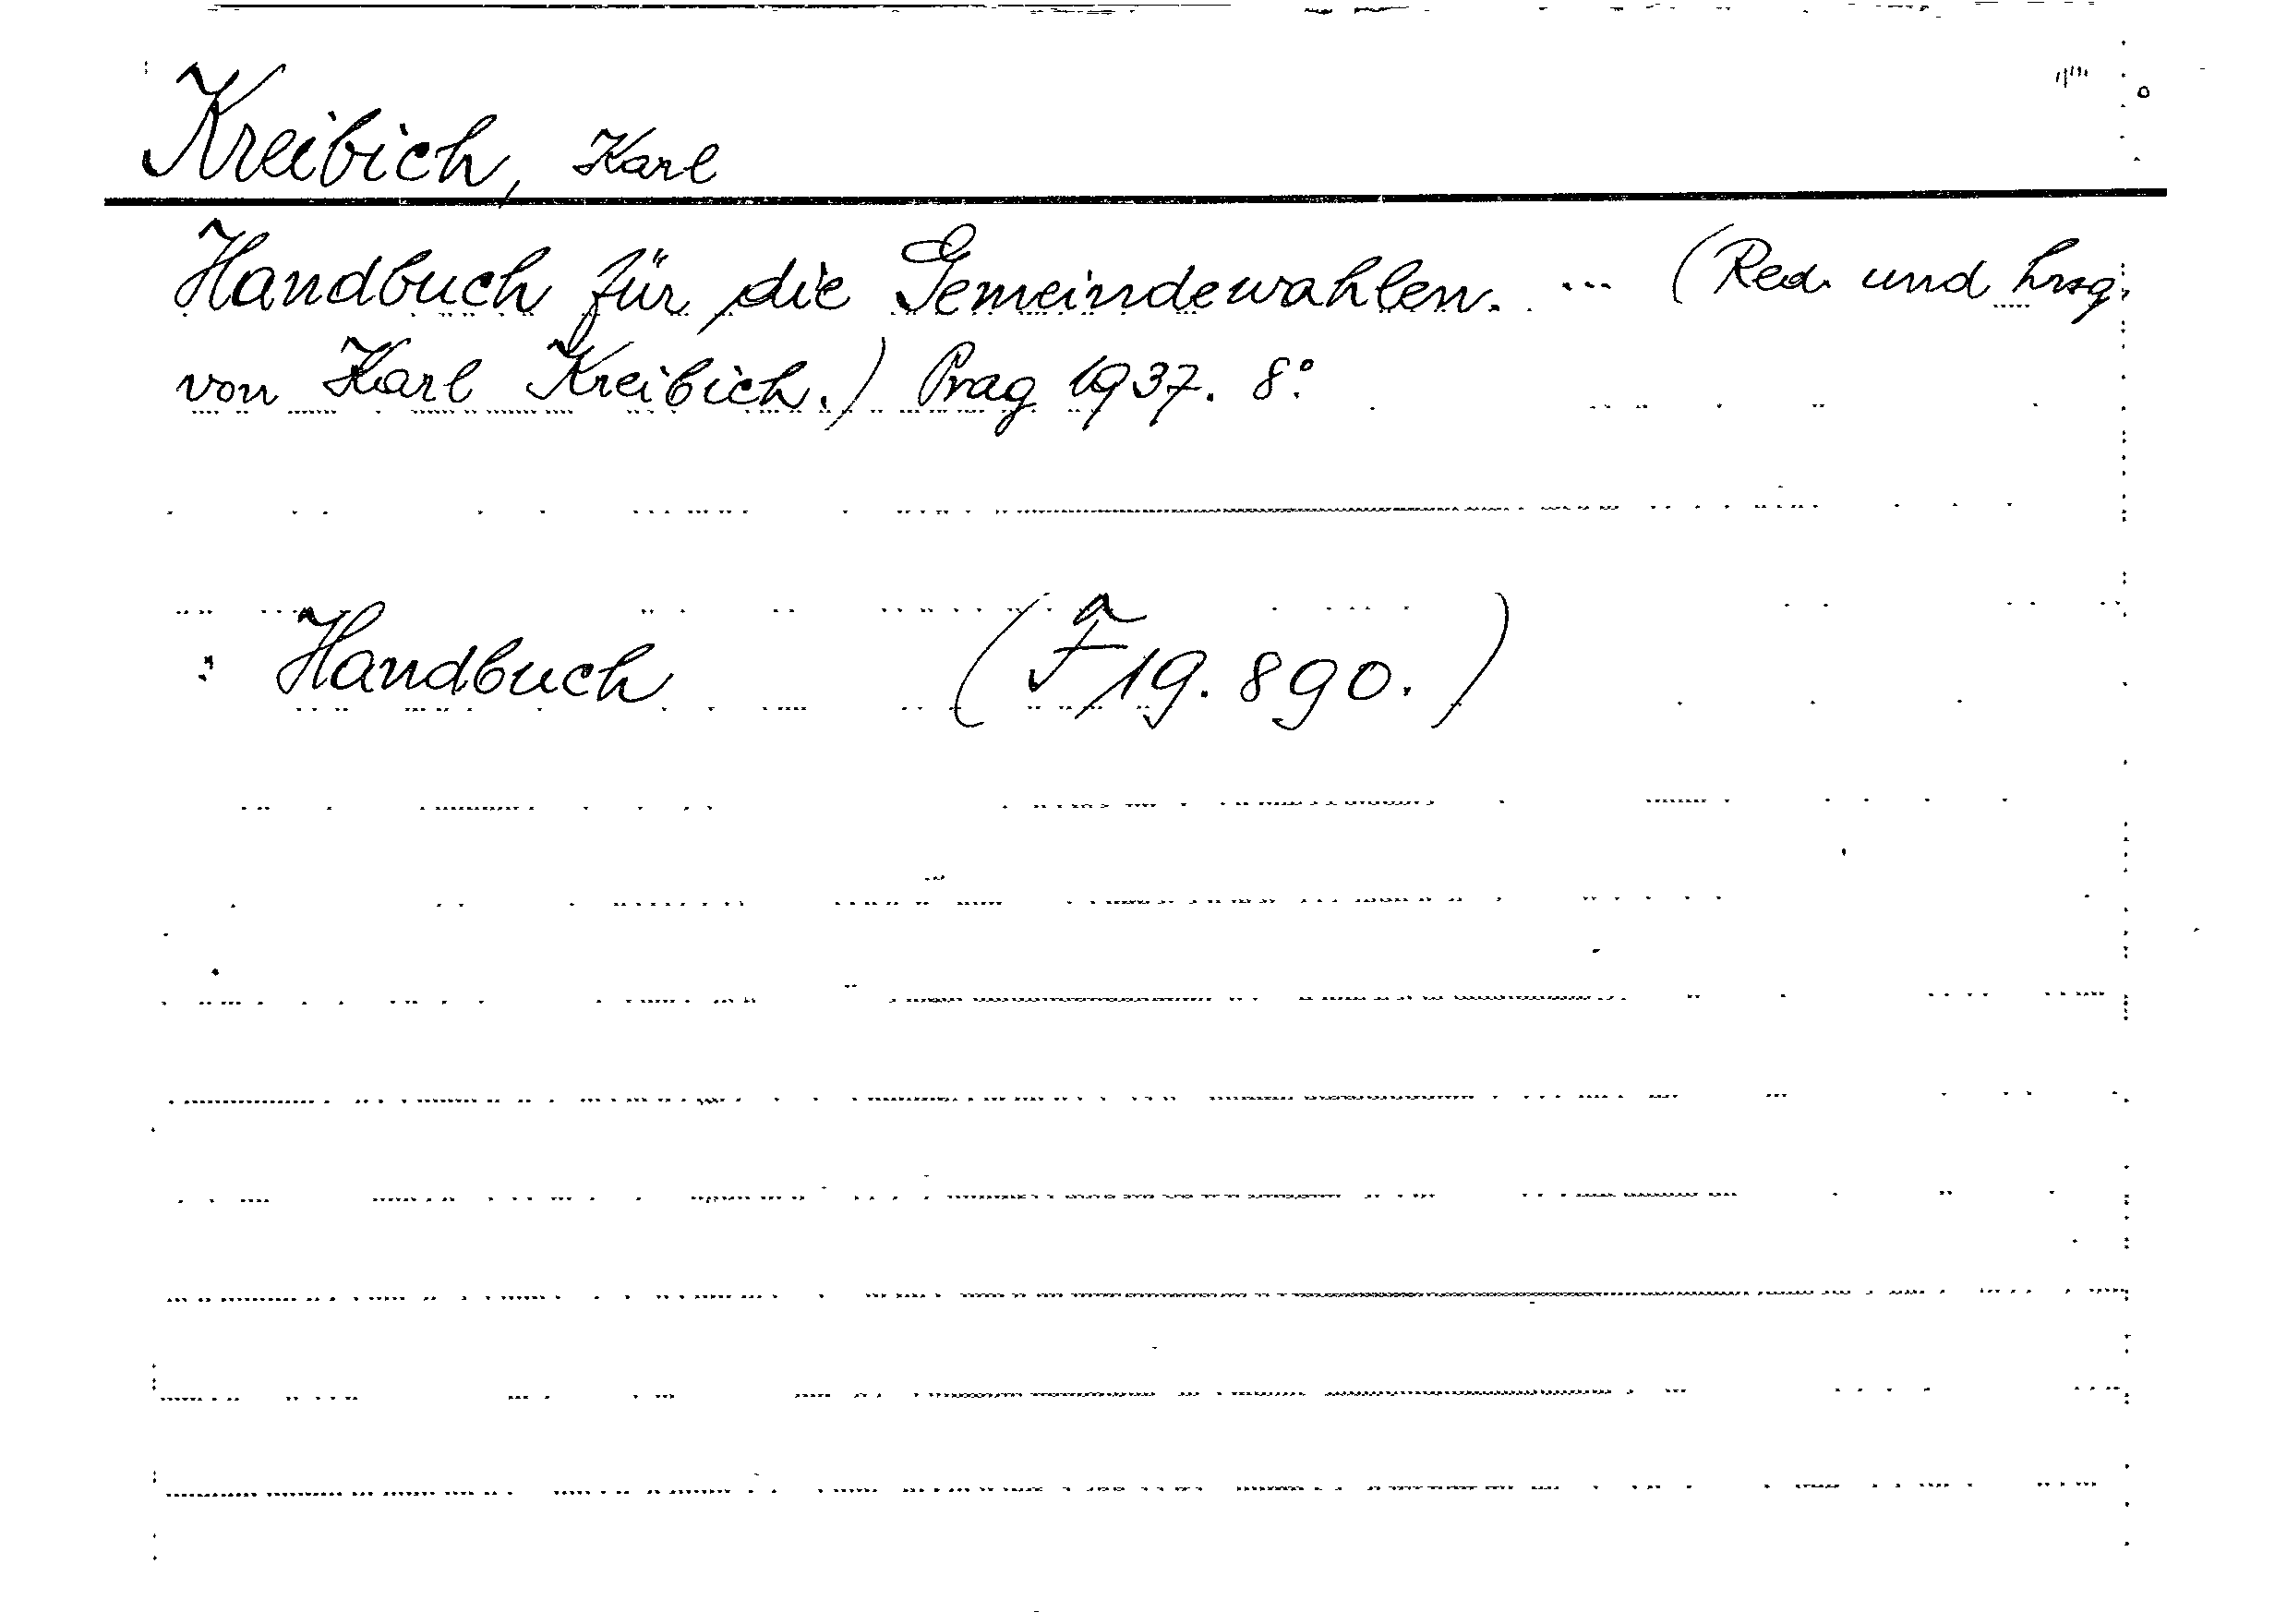 Kreibich, Karl
Handbuch für die Gemeindewahlen. ... (Red. und hrsg.
von Karl Kreibich.) Prag 1937. 8°.
: Handbuch (F 19.890.)